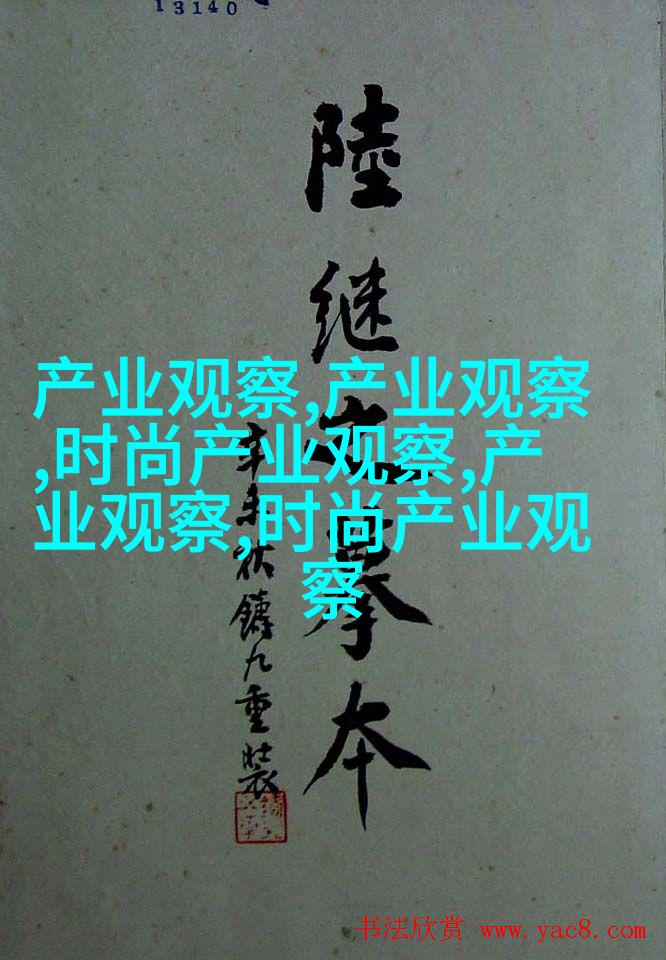 13140
陸继之摹本
辛未秋鑄九重裝
产业观察,产业观察
,时尚产业观察,产
业观察,时尚产业观
察
书法欣赏 www.yac8.com